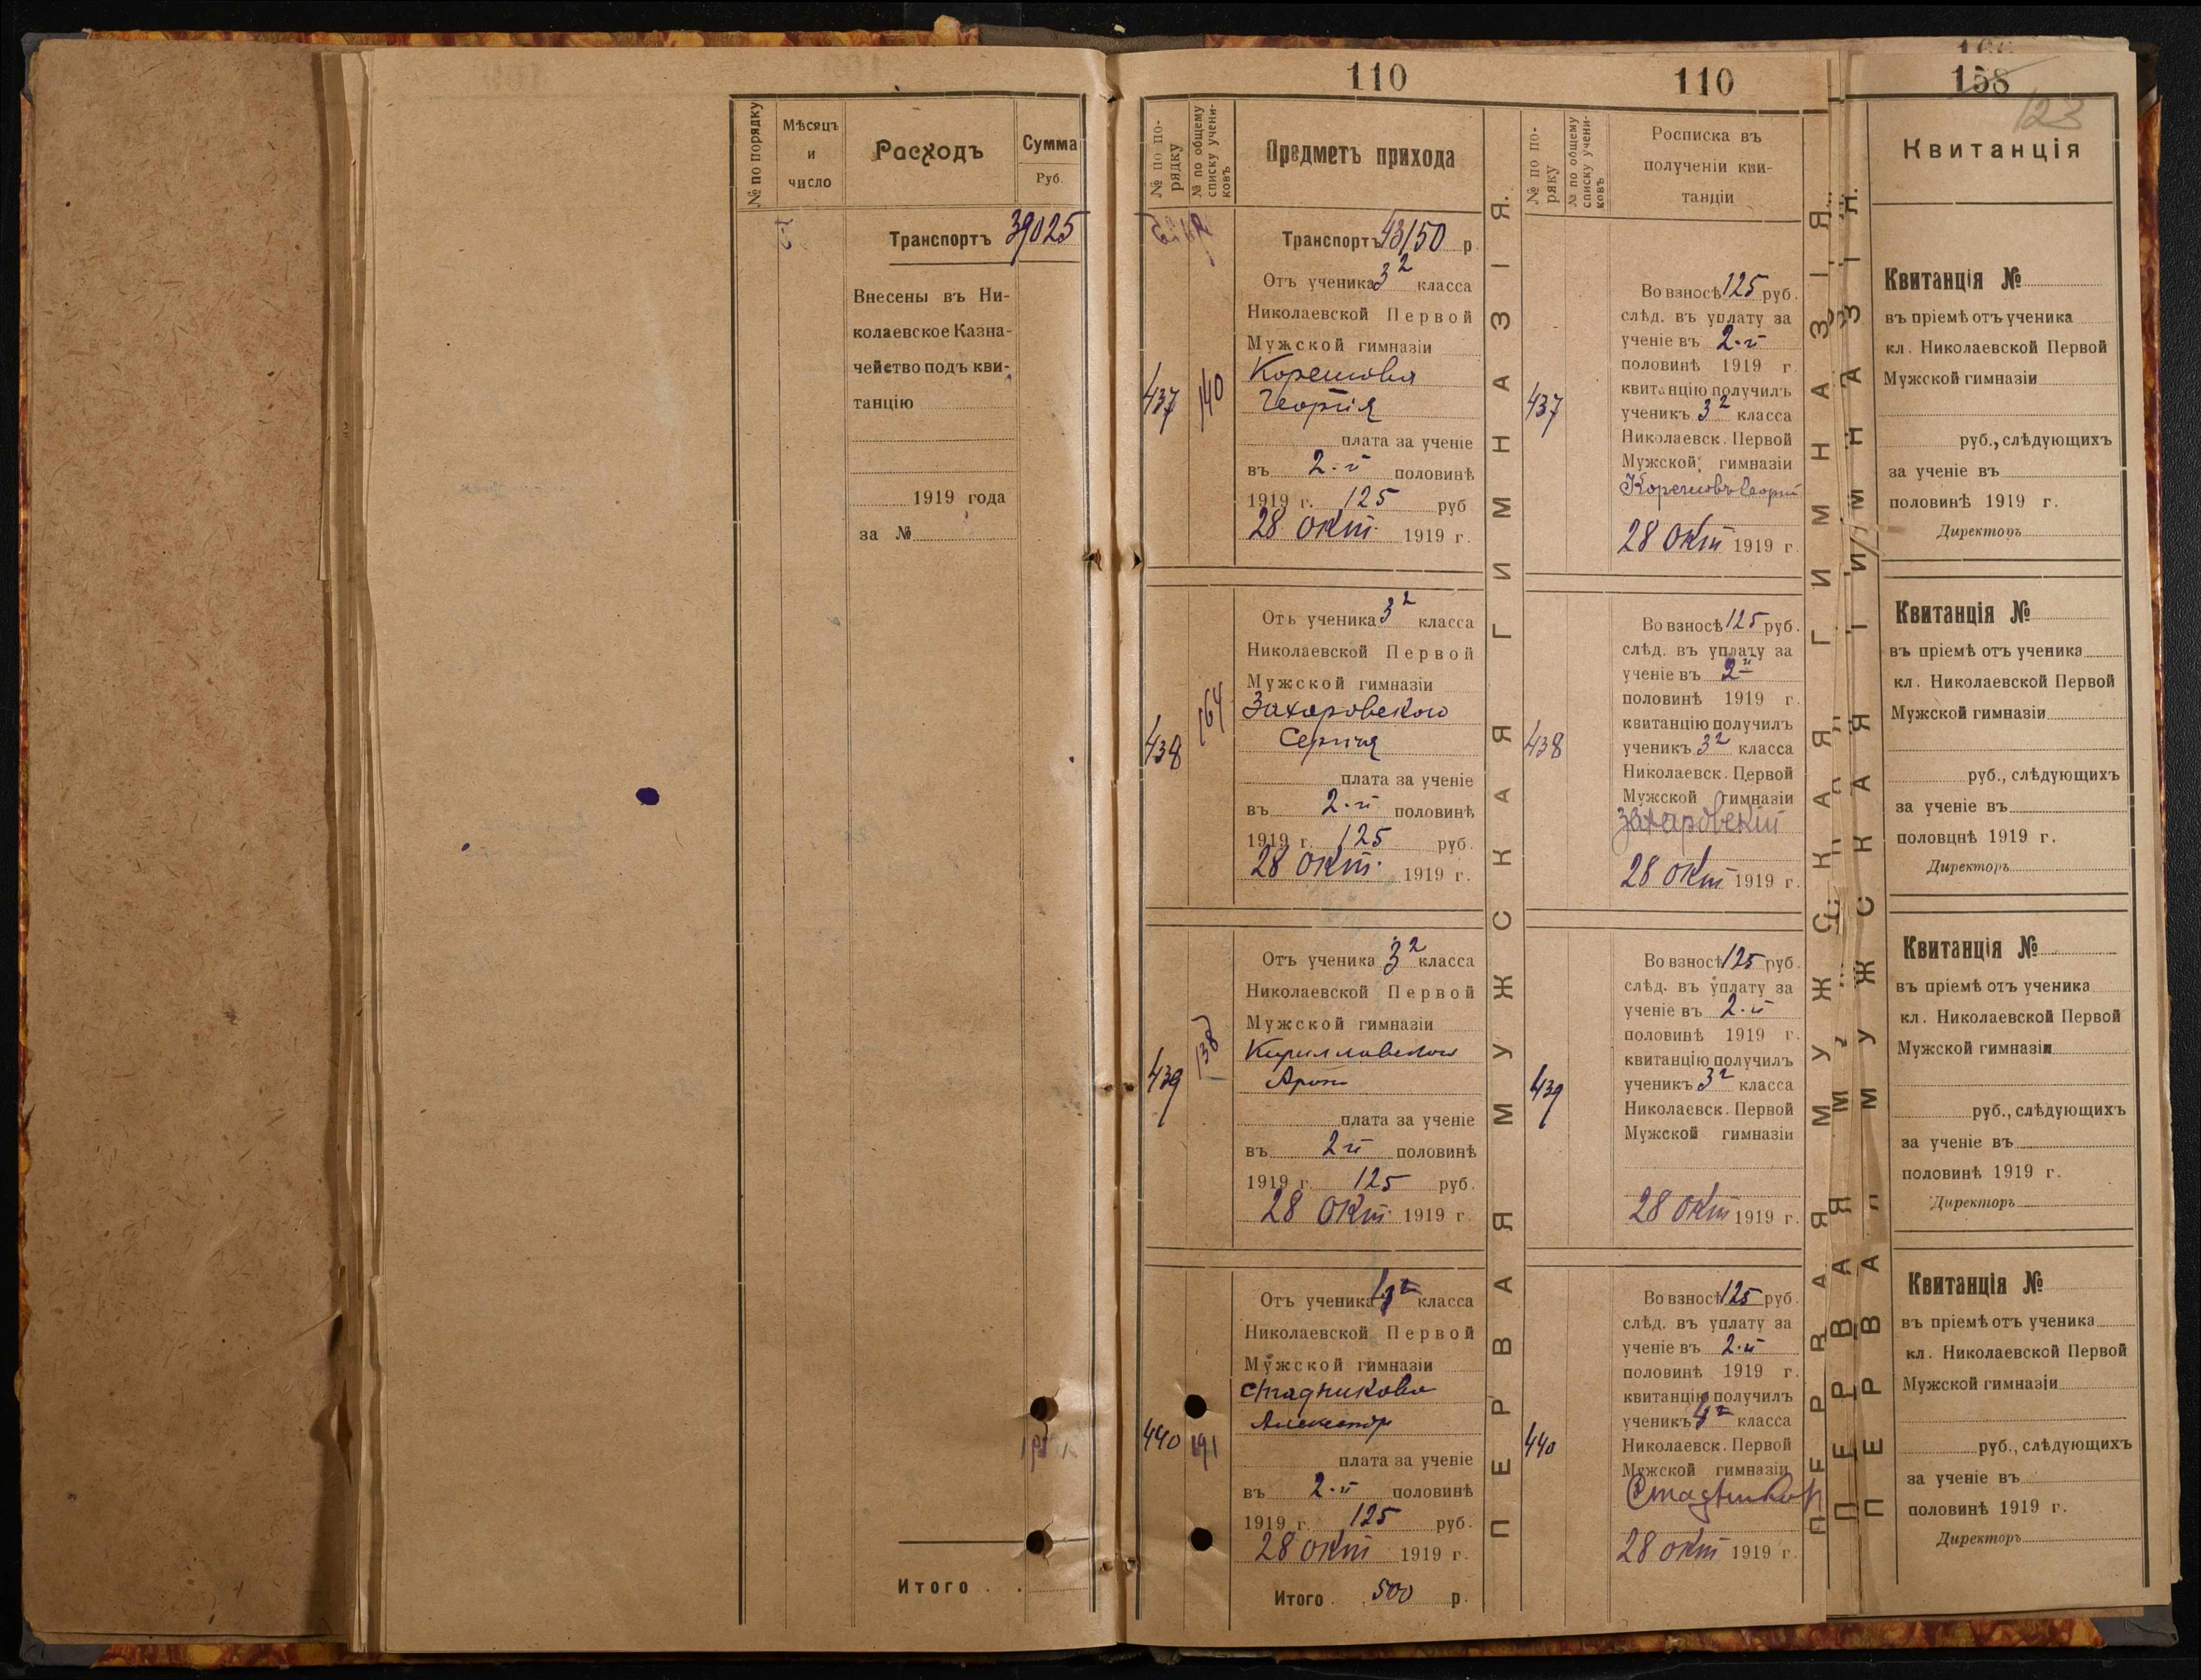 № по порядку
Мѣсяцъ
и
число
Расходъ
Сумма
Руб.
Транспортъ 39025
Внесены въ Ни-
колаевское Казна-
чейство подъ кви-
танцію
1919 года
за №
Итого .
110
№ по по-
рядку
№ по общему
списку учени-
ковъ
Предметъ прихода
Транспортъ 43150 р
Отъ ученика 3² класса
Николаевской Первой
Мужской гимназіи
Корешова
Георгія
437
140
плата за ученіе
въ 2-й половинѣ
1919 г. 125 руб
28 Окт. 1919 г.
Отъ ученика 3² класса
Николаевской Первой
Мужской гимназіи
Захаровского
Сергія
438
164
плата за ученіе
въ 2-й половинѣ
1919 г. 125 руб.
28 Окт. 1919 г.
Отъ ученика 3² класса
Николаевской Первой
Мужской гимназіи
Кирилловского
439
138
плата за ученіе
въ 2й половинѣ
1919 г. 125 руб.
28 Окт. 1919 г.
Отъ ученика класса
Николаевской Первой
Мужской гимназіи
Стадникова
Александр
440
191
плата за ученіе
въ 2-й половинѣ
1919 г. 125 руб.
28 окт 1919 г.
Итого . 500 р.
ПЕРВАЯ МУЖСКАЯ ГИМНАЗІЯ.
110
№ по по-
ряку
№ по общему
списку учени-
ковъ
Росписка въ
полученіи кви-
танціи
Во взносѣ 125 руб.
слѣд. въ уплату за
ученіе въ 2-й
половинѣ 1919 г.
квитанцію получилъ
437
ученикъ 3² класса
Николаевск. Первой
Мужской гимназіи
Корешовъ Георгій
28 Окт 1919 г.
Во взносѣ 125 руб.
слѣд. въ уплату за
ученіе въ 2й
половинѣ 1919 г.
квитанцію получилъ
438
ученикъ 3² класса
Николаевск. Первой
Мужской гимназіи
Захаровскій
28 Окт 1919 г.
Во взносѣ 125 руб.
слѣд. въ уплату за
ученіе въ 2-й
половинѣ 1919 г.
квитанцію получилъ
439
ученикъ 3² класса
Николаевск. Первой
Мужской гимназіи
28 Окт 1919 г.
Во взносѣ 125 руб.
слѣд. въ уплату за
ученіе въ 2-й
половинѣ 1919 г.
квитанцію получилъ
440
ученикъ 4² класса
Николаевск. Первой
Мужской гимназіи
Стадников
28 окт 1919 г.
ПЕРВАЯ МУЖСКАЯ ГИМНАЗІЯ.
158
123
Квитанція
Квитанція №
въ пріемѣ отъ ученика
кл. Николаевской Первой
Мужской гимназіи
руб., слѣдующихъ
за ученіе въ
половинѣ 1919 г.
Директоръ
Квитанція №
въ пріемѣ отъ ученика
кл. Николаевской Первой
Мужской гимназіи
руб., слѣдующихъ
за ученіе въ
половцнѣ 1919 г.
Директоръ
Квитанція №
въ пріемѣ отъ ученика
кл. Николаевской Первой
Мужской гимназіи
руб., слѣдующихъ
за ученіе въ
половинѣ 1919 г.
Директоръ
Квитанція №
въ пріемѣ отъ ученика
кл. Николаевской Первой
Мужской гимназіи
руб., слѣдующихъ
за ученіе въ
половинѣ 1919 г.
Директоръ